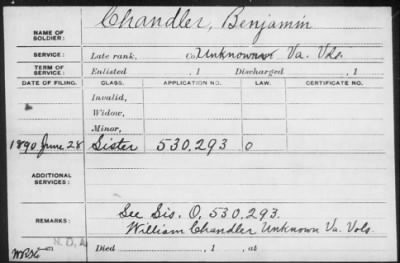 NAME OF SOLDIER: Chandler, Benjamin
SERVICE: Late rank, Co. Unknown Va. Vols.
TERM OF SERVICE: Enlisted , 1 Discharged , 1
DATE OF FILING. CLASS. APPLICATION NO. LAW. CERTIFICATE NO.
Invalid,
Widow,
Minor,
1890 June 28 Sister 530,293 O
ADDITIONAL SERVICES:
REMARKS: See Sis. O. 530,293.
William Chandler Unknown Va. Vols.
N.D.A.
Died , 1 , at